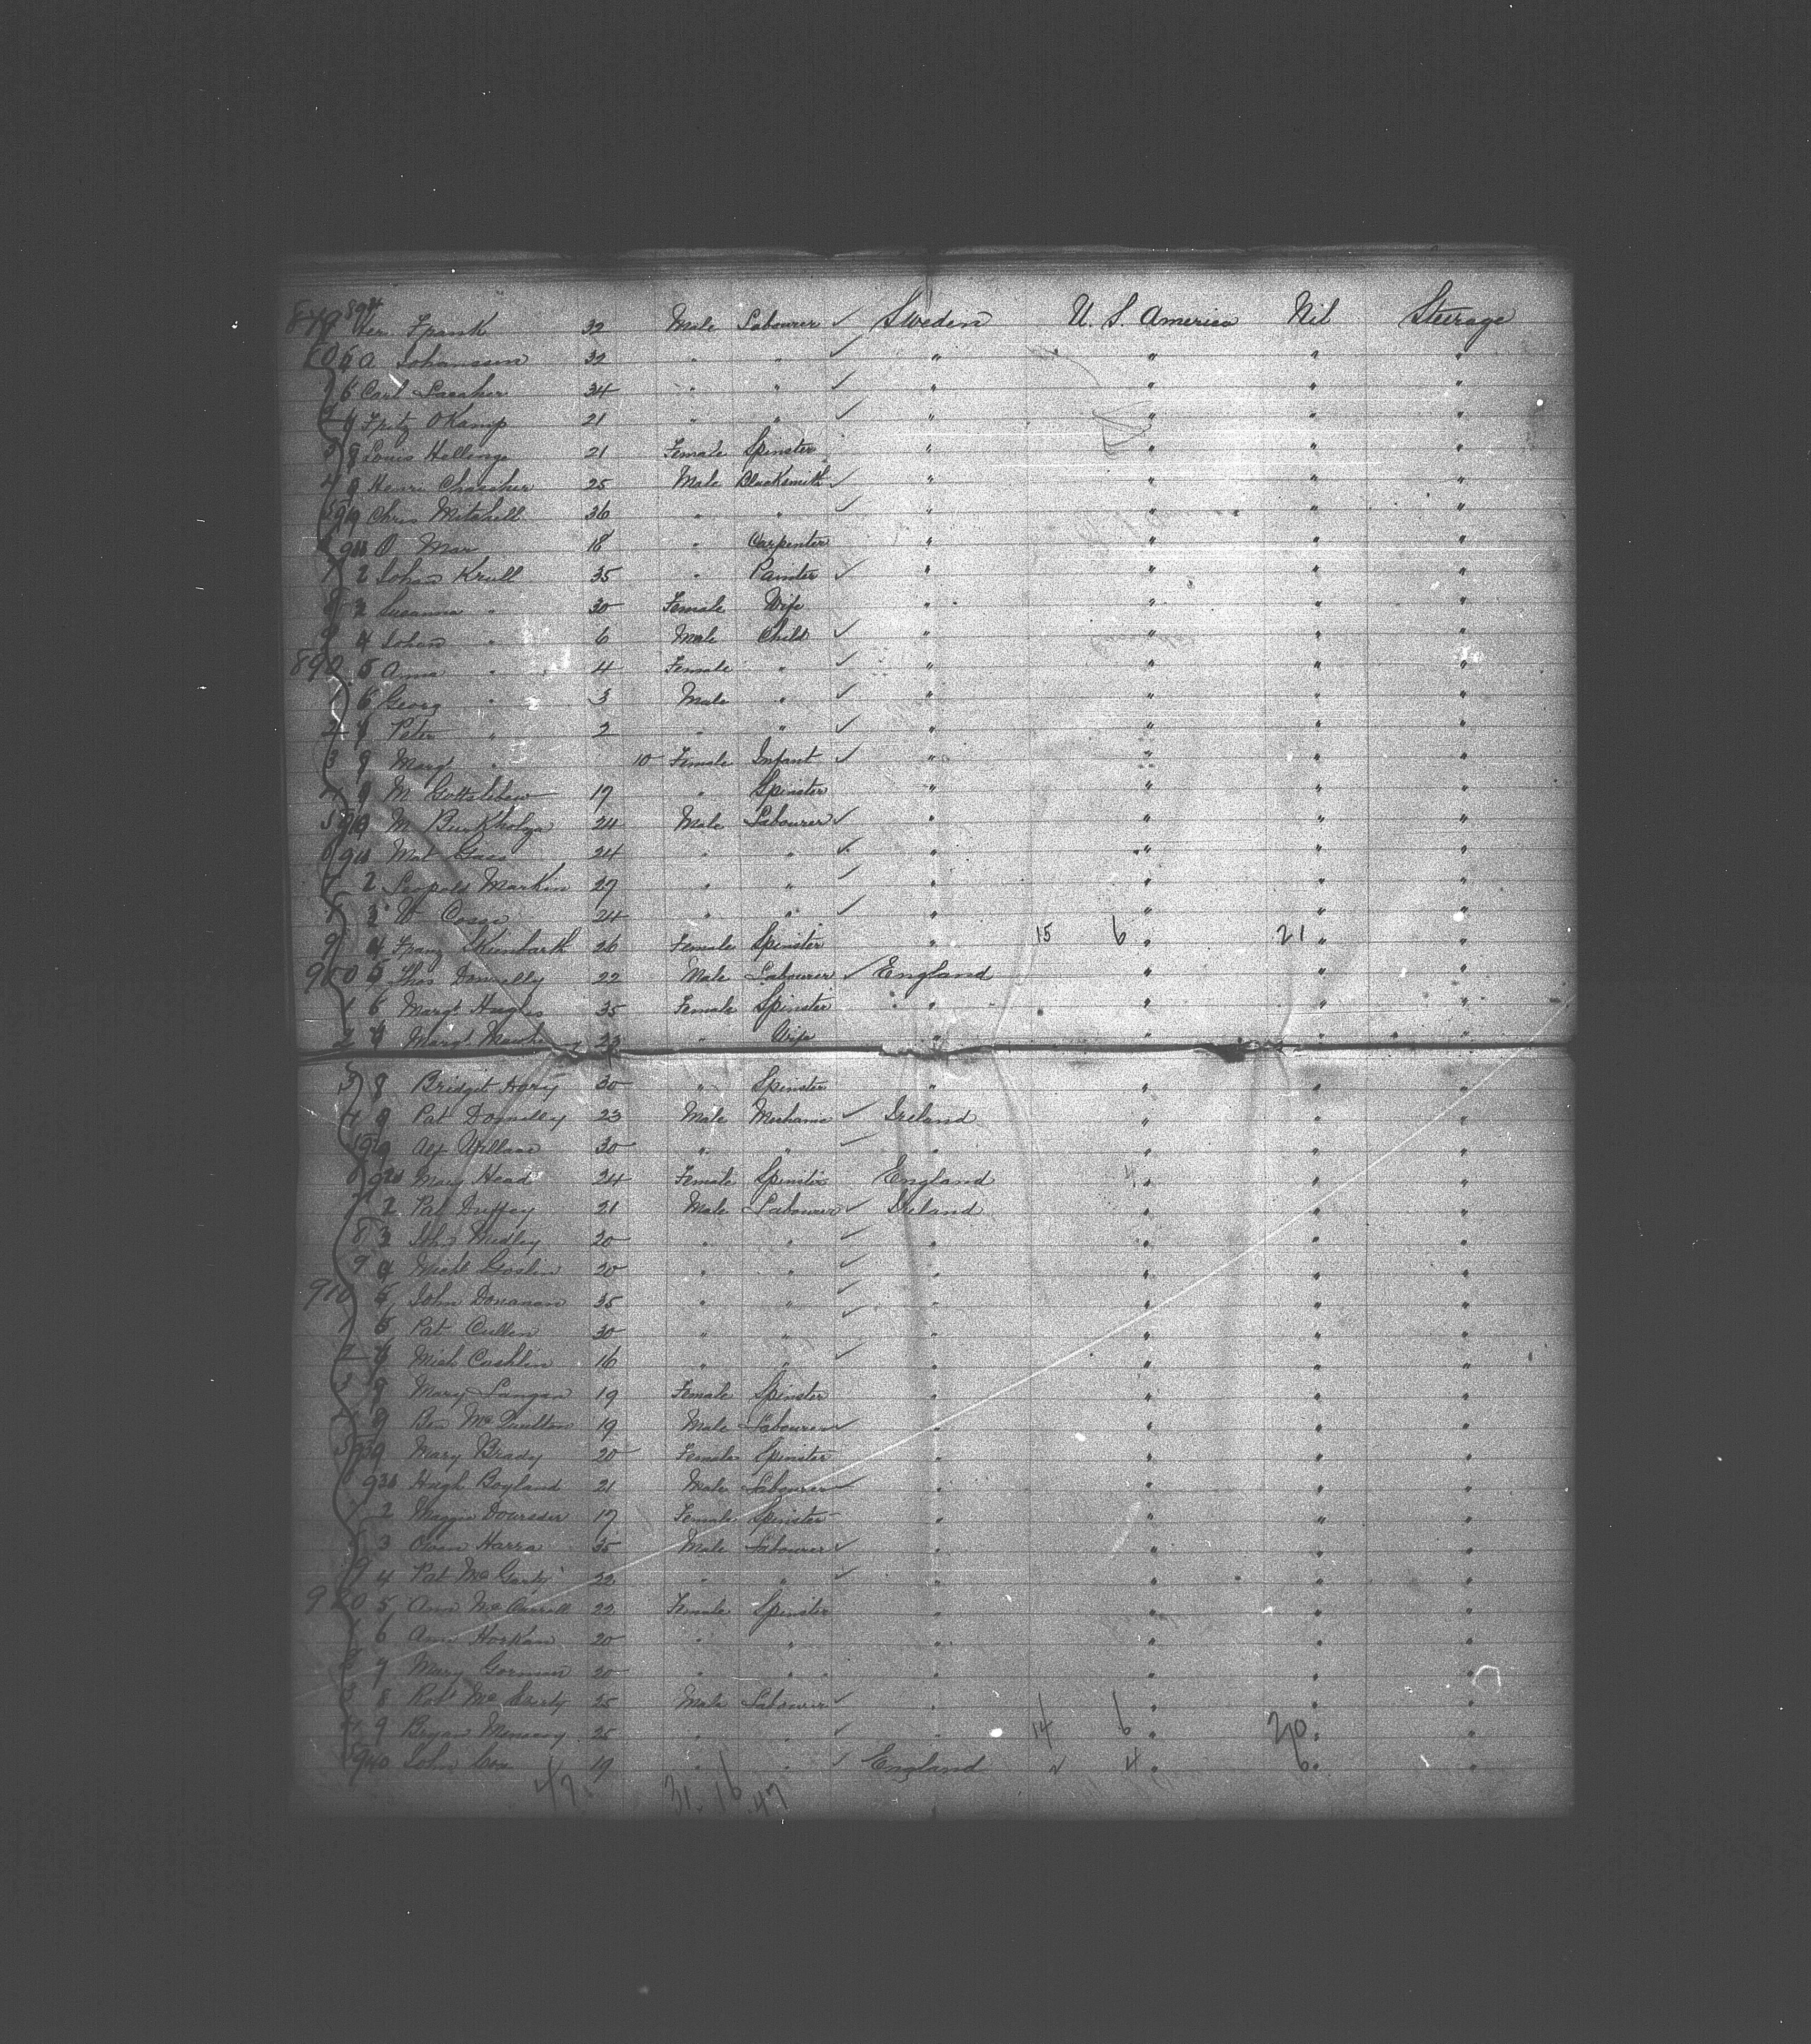 879 894 Her. Frank 32 Male Labourer ✓ Sweden U. S. America Nil Steerage
5 A Johanson 32 " " ✓ " " " "
6 Carl 34 " " ✓ " " " "
7 Fritz OKamp 21 " " ✓ " " " "
3 8 Louis Hellinge 21 Female Spinster " " " "
4 9 Henri Chascher 25 Male Blacksmith ✓ " " " "
5 Chris Mitchell 36 " " ✓ " " " "
O. Mar 18 " Carpenter " " " "
7 2 Johan Krull 35 " Painter ✓ " " " "
8 3 Susanna " 30 Female Wife " " " "
9 4 Johan " 6 Male Child ✓ " " " "
890 5 Anna " 4 Female " ✓ " " " "
6 Georg " 3 Male " ✓ " " " "
2 7 Peter " 2 " " ✓ " " " "
3 8 Marg " 10 Female Infant ✓ " " " "
4 9 M. 17 " Spinster " " " "
5 M. Burkholza 24 Male Labourer ✓ " " " "
6 911 Mat Gass 24 " " ✓ " " " "
7 2 Leopold Markin 27 " " ✓ " " " "
8 3 W 24 " " ✓ " " " "
9 4 Franz 26 Female Spinster " 15 6 " 21 " "
900 5 Thos Donnelly 22 Male Labourer ✓ England " " "
1 6 Margt Hughes 35 Female Spinster " " " "
2 7 Margt " Wife " " " "
3 8 Bridget Hory 30 " Spinster " " " "
4 9 Pat Donnelly 23 Male Mechanic ✓ Ireland " " "
Alf 30 " " ✓ " " " "
6 Mary Head 24 Female Spinster England " " "
7 2 Pat Duffey 21 Male Labourer ✓ Ireland " " "
8 3 John Medley 20 " " ✓ " " " "
9 4 Michl Goslin 20 " " ✓ " " " "
910 5 John Donanan 35 " " ✓ " " " "
1 6 Pat Cullen 30 " " ✓ " " " "
2 7 Mich Cashlin 16 " " ✓ " " " "
3 8 Mary Langan 19 Female Spinster " " " "
4 9 Ben 19 Male Labourer ✓ " " " "
5 Mary Brady 20 Female Spinster " " " "
6 Hugh Boyland 21 Male Labourer ✓ " " " "
7 2 Maggie 17 Female Spinster " " " "
8 3 Owen Harra 35 Male Labourer ✓ " " " "
9 4 Pat McGarty 22 " " ✓ " " " "
920 5 Ann McCarroll 22 Female Spinster " " " "
1 6 Ann Horkan 20 " " " " " "
2 7 Mary Gorman 20 " " " " " "
3 8 Robt 25 Male Labourer ✓ " " " "
4 9 Bryan 25 " " ✓ " 14 6 " 20 " "
5 940 John Cox 19 " " ✓ England 4 " 6 " "
47 31. 16 .47